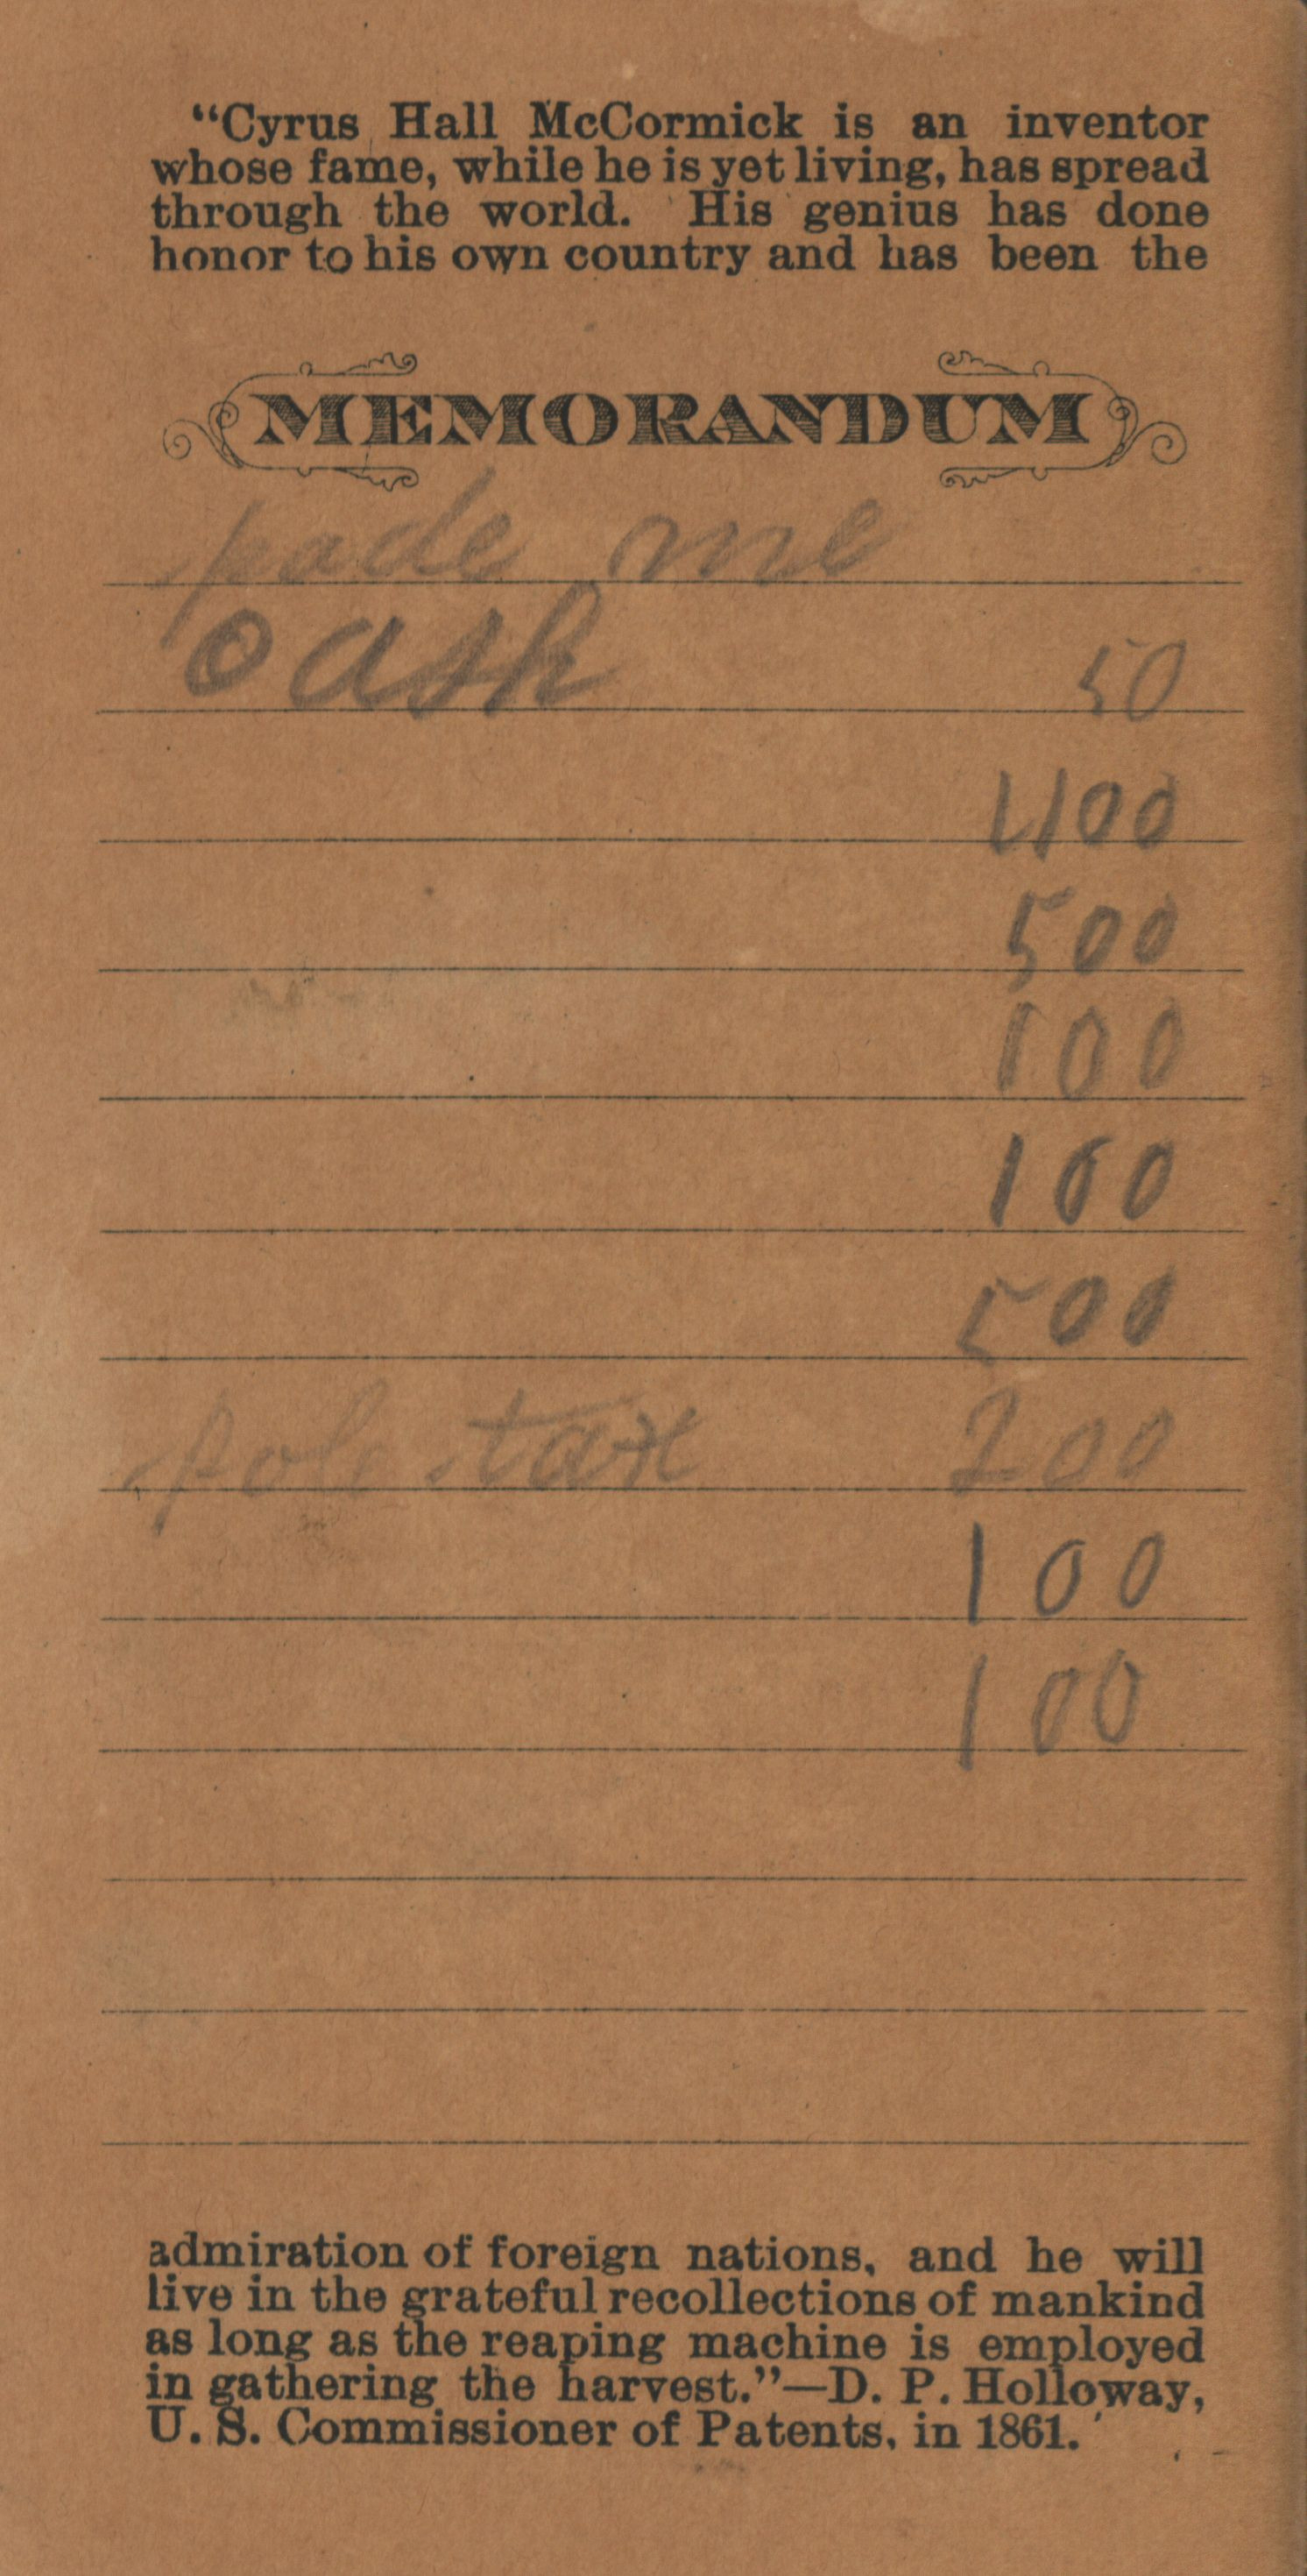 “Cyrus Hall McCormick is an inventor
whose fame, while he is yet living, has spread
through the world. His genius has done
honor to his own country and has been the
MEMORANDUM
pade me
cash 50
1100
500
100
100
500
pole tax 200
100
100
admiration of foreign nations, and he will
live in the grateful recollections of mankind
as long as the reaping machine is employed
in gathering the harvest.”—D. P. Holloway,
U. S. Commissioner of Patents, in 1861.